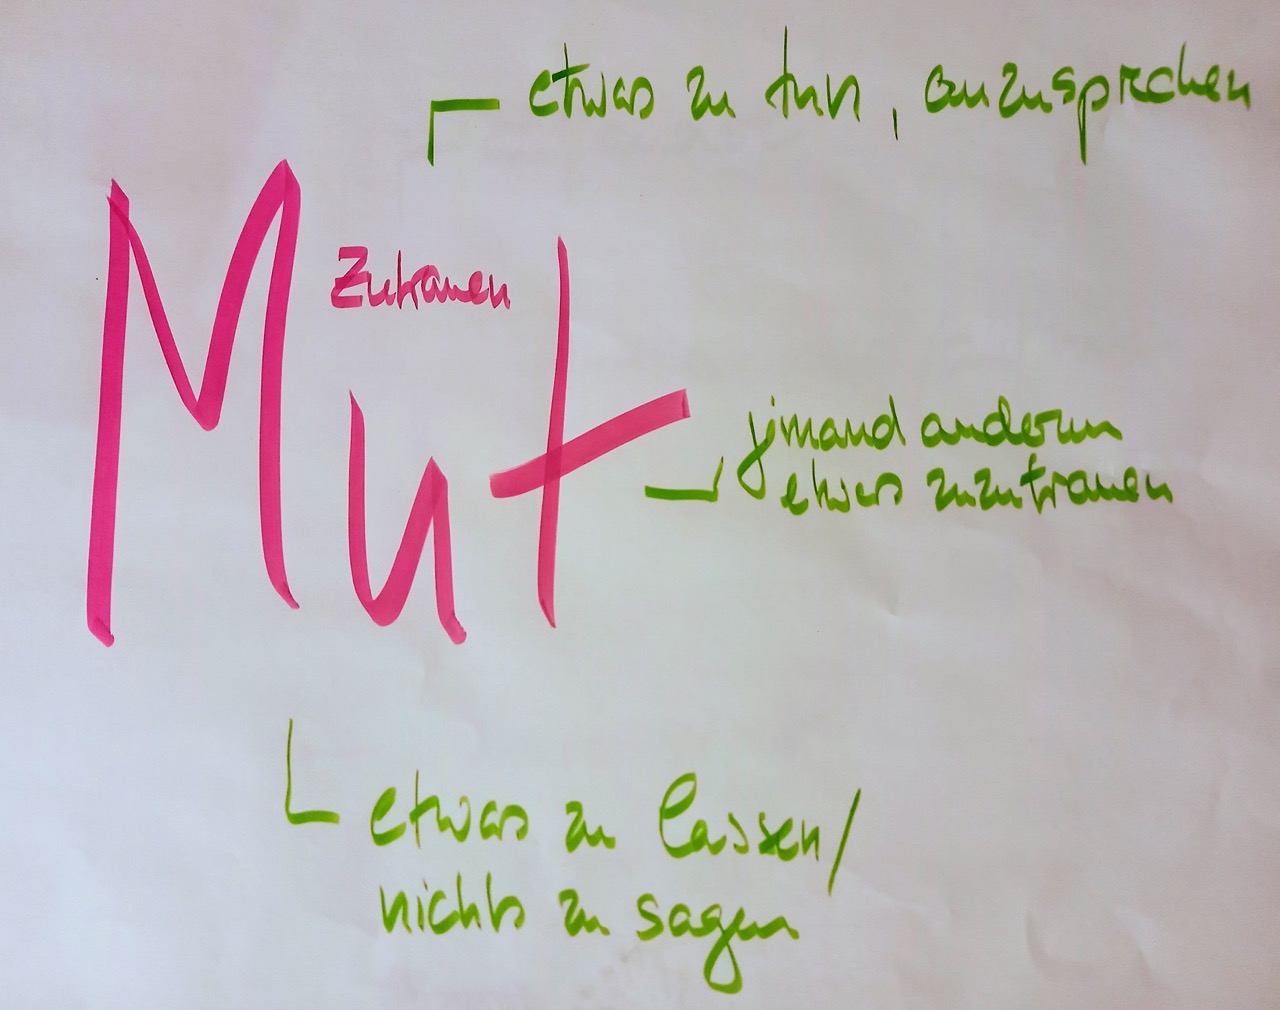 etwas zu tun, anzusprechen
Zutrauen
Mut
jemand anderem
etwas zuzutrauen
etwas zu lassen/
nichts zu sagen